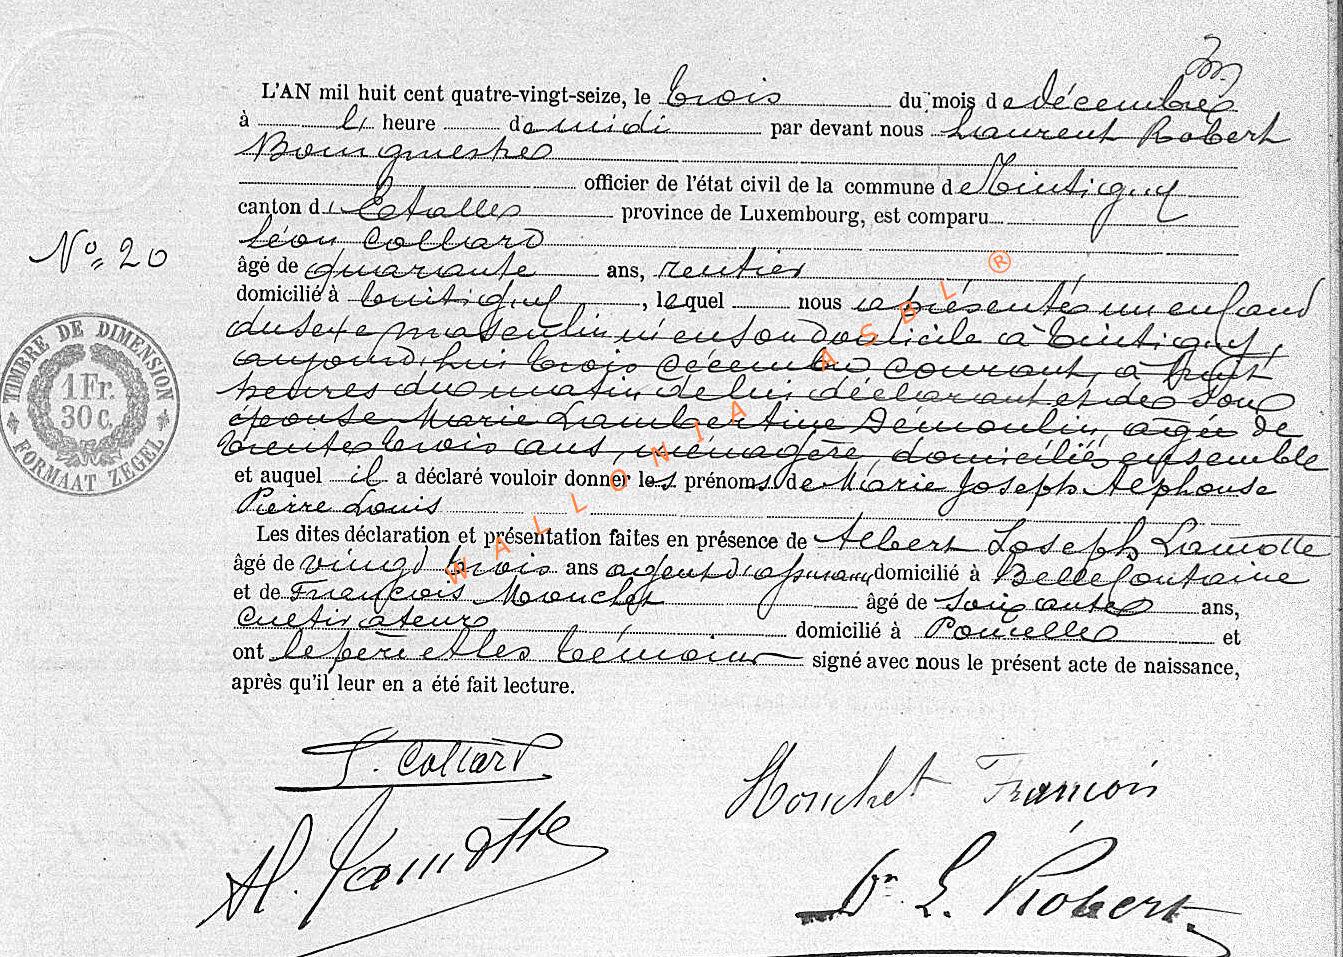 L'AN mil huit cent quatre-vingt-seize, le trois du mois de décembre
à heure de midi par devant nous Laurent Robert
Bourgmestre
officier de l'état civil de la commune de Tintigny
canton d'Etalle province de Luxembourg, est comparu
Léon Collard
N° 20
âgé de quarante ans, rentier
domicilié à Tintigny, lequel nous a présenté un enfant
du sexe masculin né en son domicile à Tintigny,
aujourd'hui trois décembre courant, à huit
heures du matin de lui déclarant et de son
épouse Marie Lambertine Demoulin, agée de
trente trois ans, ménagère, domiciliés ensemble
et auquel il a déclaré vouloir donner les prénoms de Marie Joseph Alphonse
Pierre Louis
Les dites déclaration et présentation faites en présence de Albert Joseph Lamotte
âgé de vingt trois ans agent d'assurance domicilié à Bellefontaine
et de François Houchet âgé de soixante ans,
cultivateur domicilié à Poncelle et
ont le père et les témoins signé avec nous le présent acte de naissance,
après qu'il leur en a été fait lecture.
TIMBRE DE DIMENSION
1 Fr.
30 c.
FORMAAT ZEGEL
WALLONIA ASBL ®
L. Collard
Houchet François
Al. Lamotte
Dr L. Robert